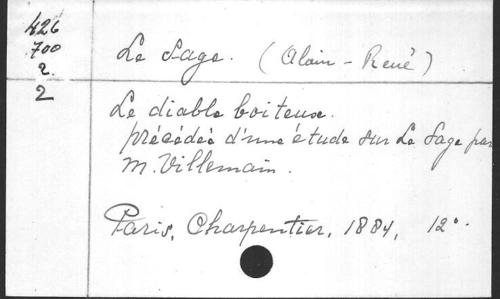 426
700
2.
2
Le Sage. (Alain-René)
Le diable boiteux.
précédée d'une étude sur Le Sage par
M. Villemain.
Paris, Charpentier, 1884, 12°.